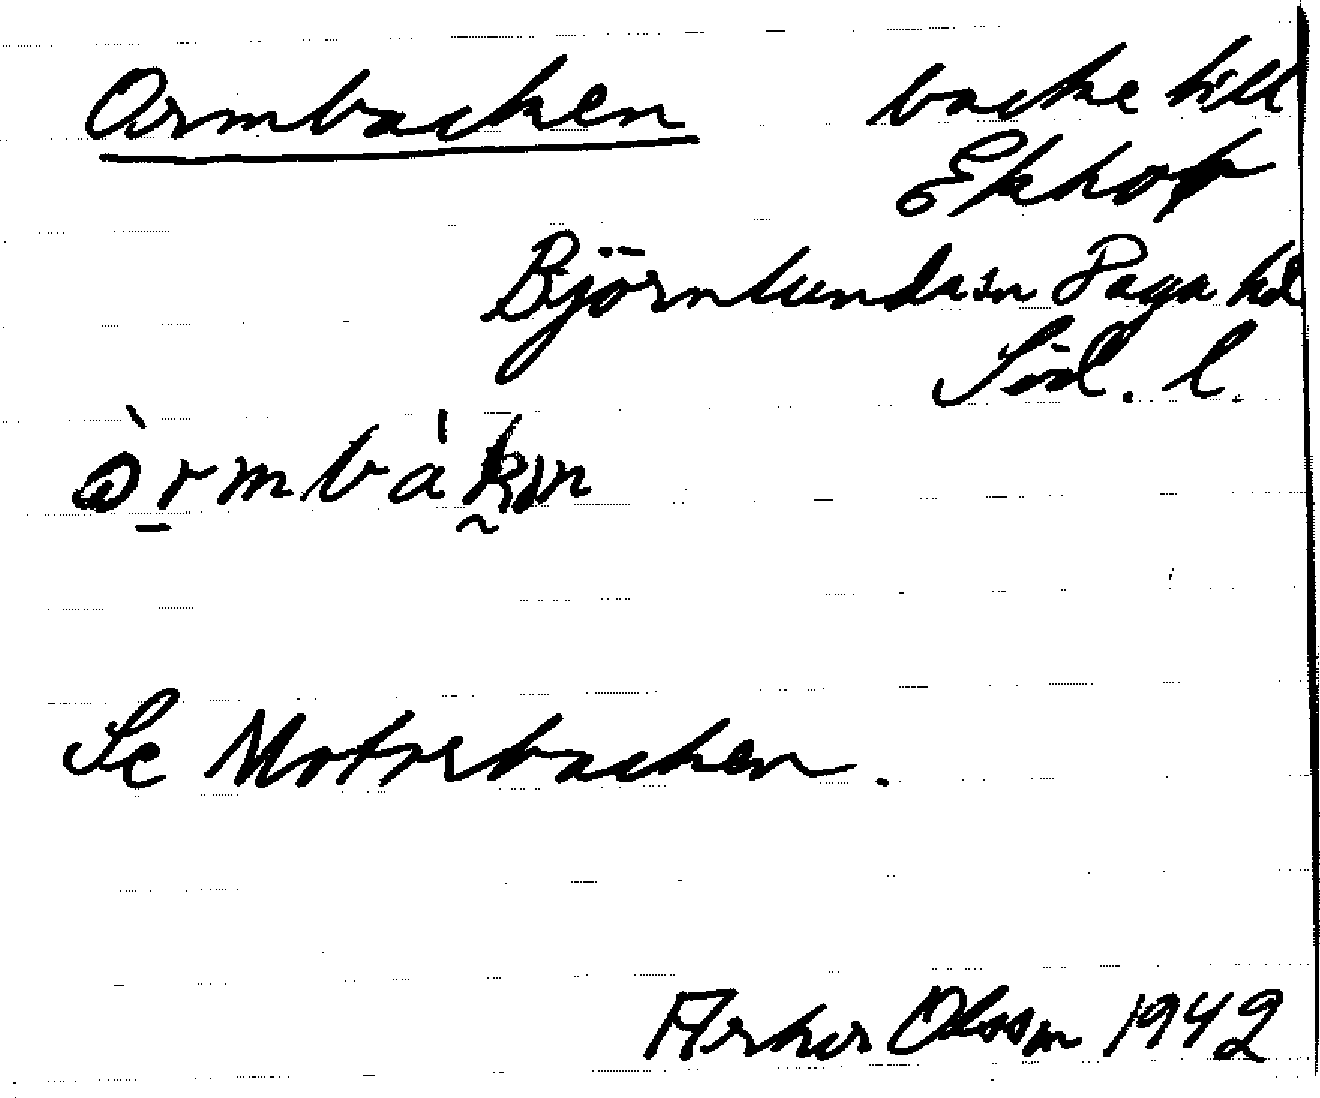 Ormbacken backe till
Ekhov
Björnlunda sn Daga hd
Söd. l.
òrmbàkən
Se Motrebacken.
Artur Olsson 1942